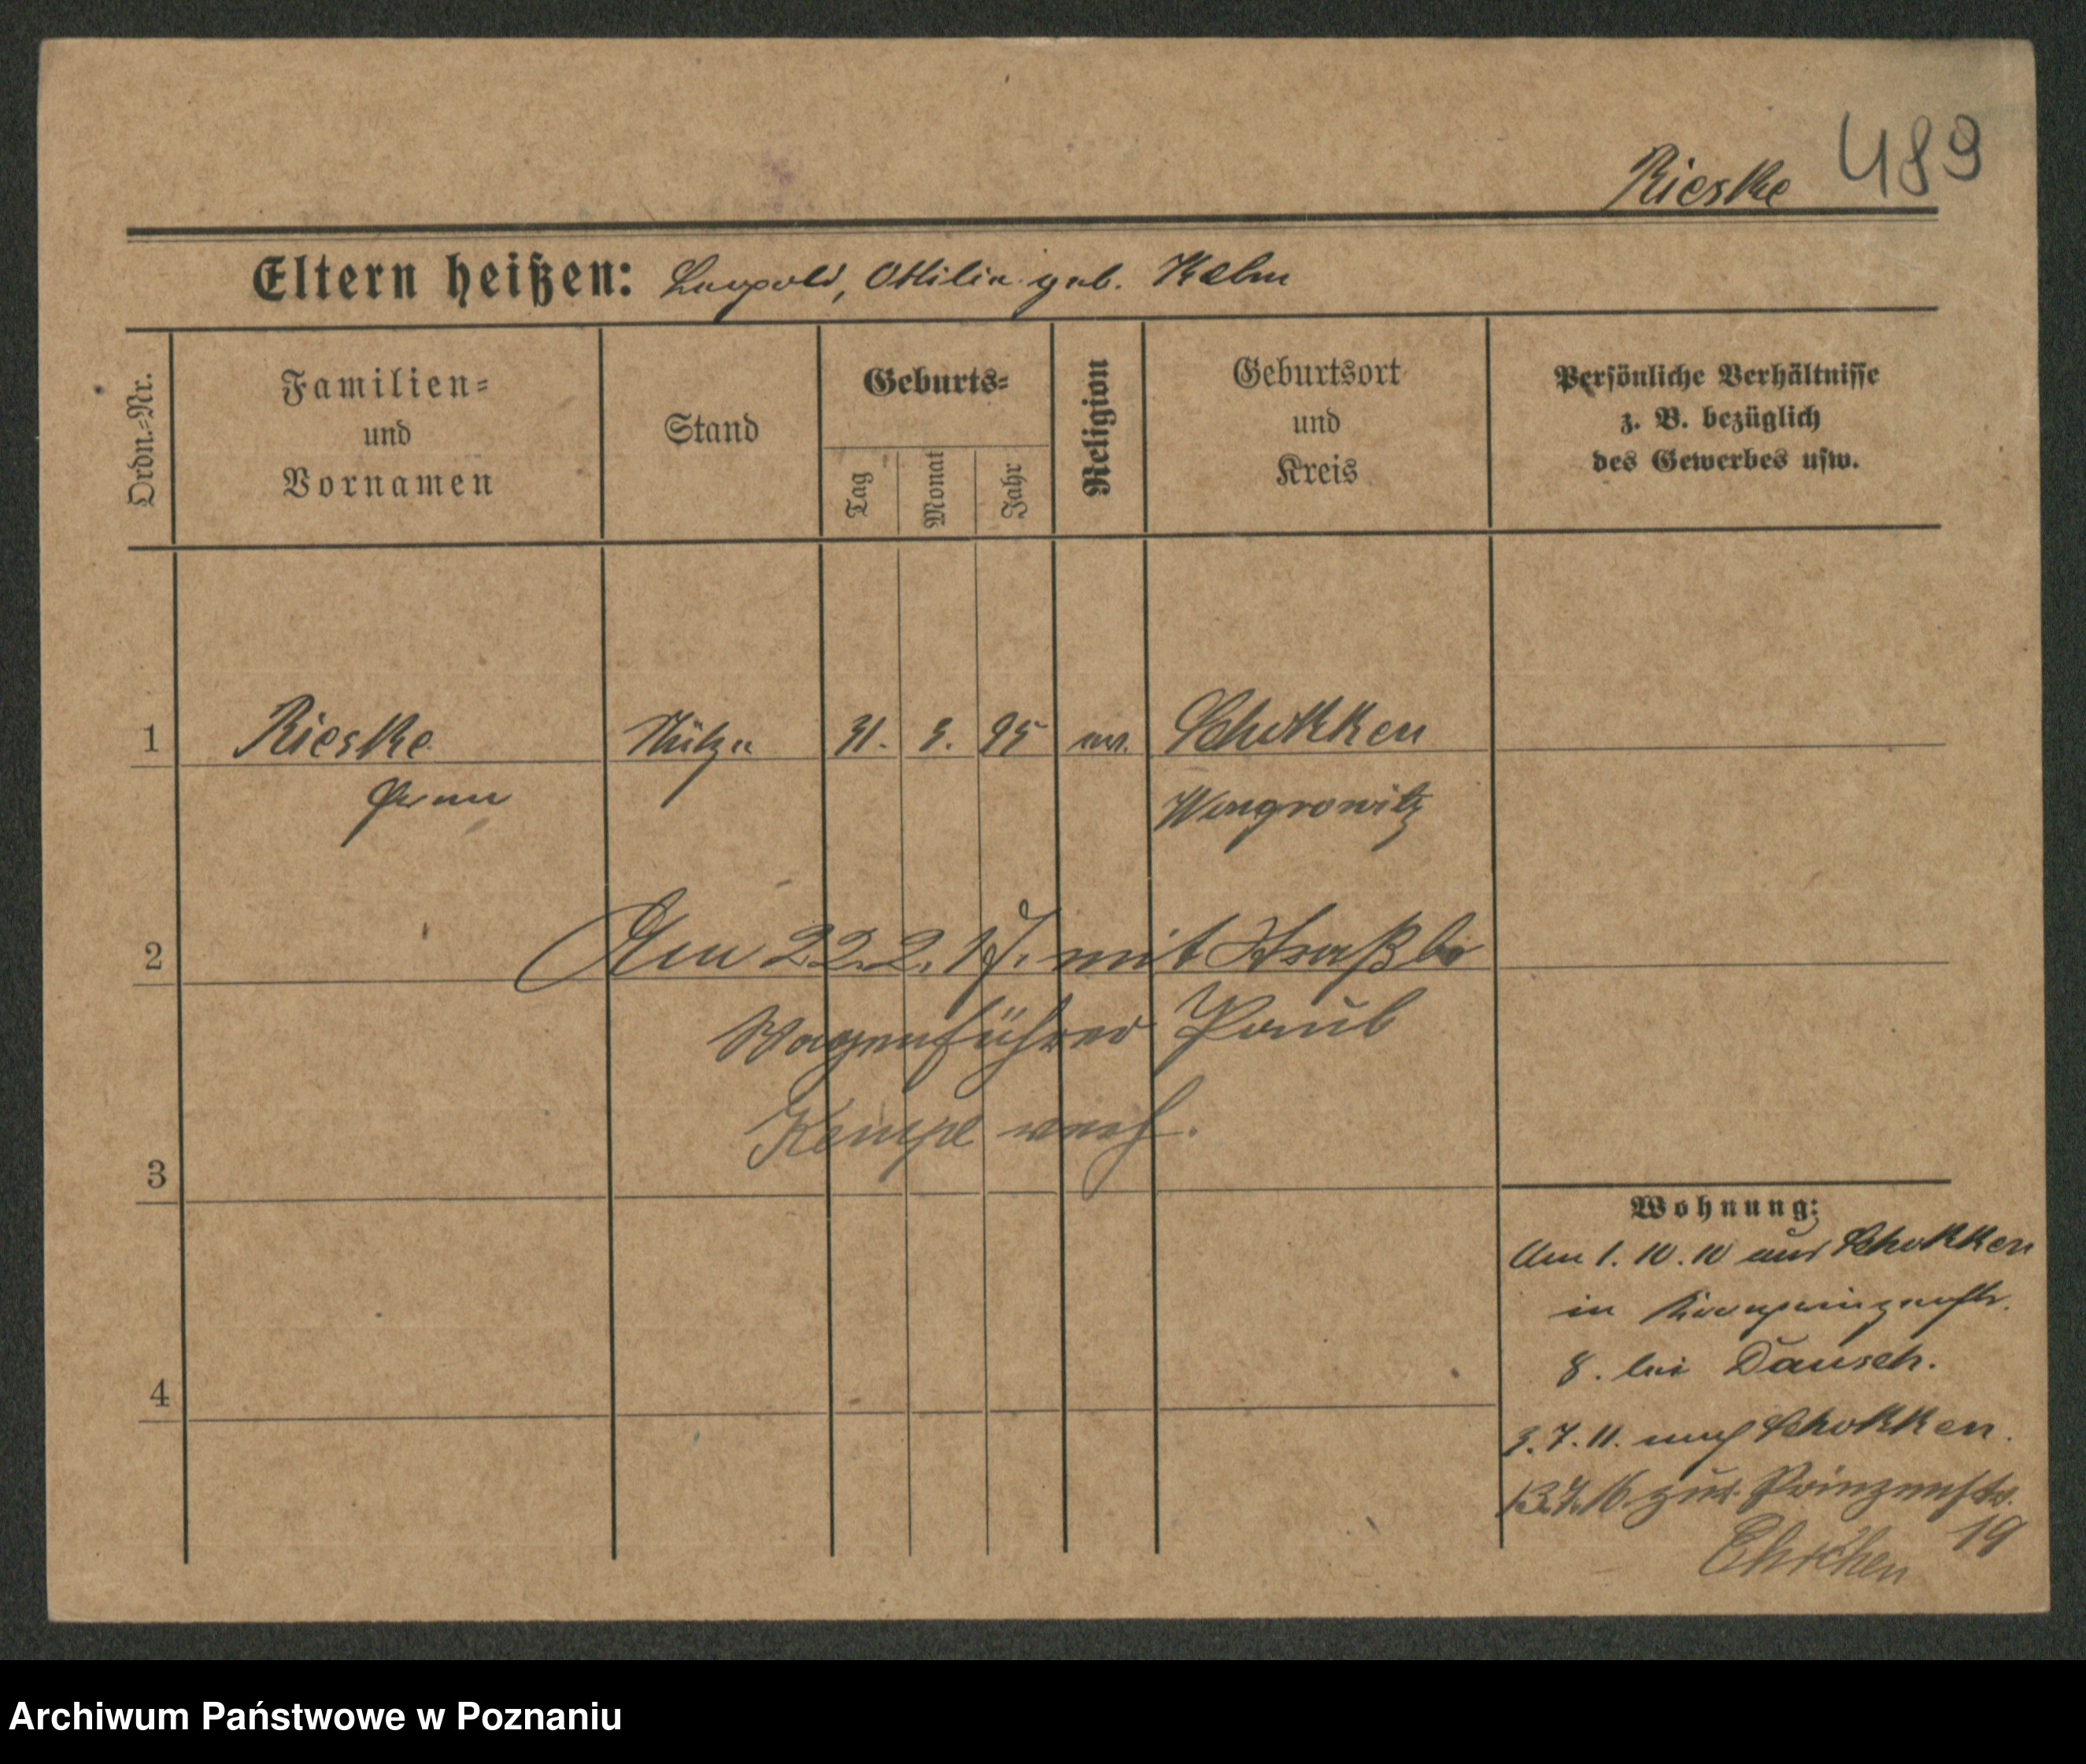 489
Rieske
Eltern heißen: Leopold, Ottilie geb. Kelm
Ordn.-Nr.
Familien-
und
Vornamen
Stand
Geburts-
Tag
Monat
Jahr
Religion
Geburtsort
und
Kreis
Persönliche Verhältnisse
z. B. bezüglich
des Gewerbes usw.
1 Rieske Stütze 31. 3. 95 Schokken
Wongrowitz
2 Am 22.2.17. mit Straßb
Wagenführer Paul
Kempe verh.
3
4
Wohnung:
Am 1.10.10 aus Schokken
in Kronprinzenstr.
8. bei Dausch.
3.7.11. nach Schokken.
zur. Prinzenstr.
19
Archiwum Państwowe w Poznaniu